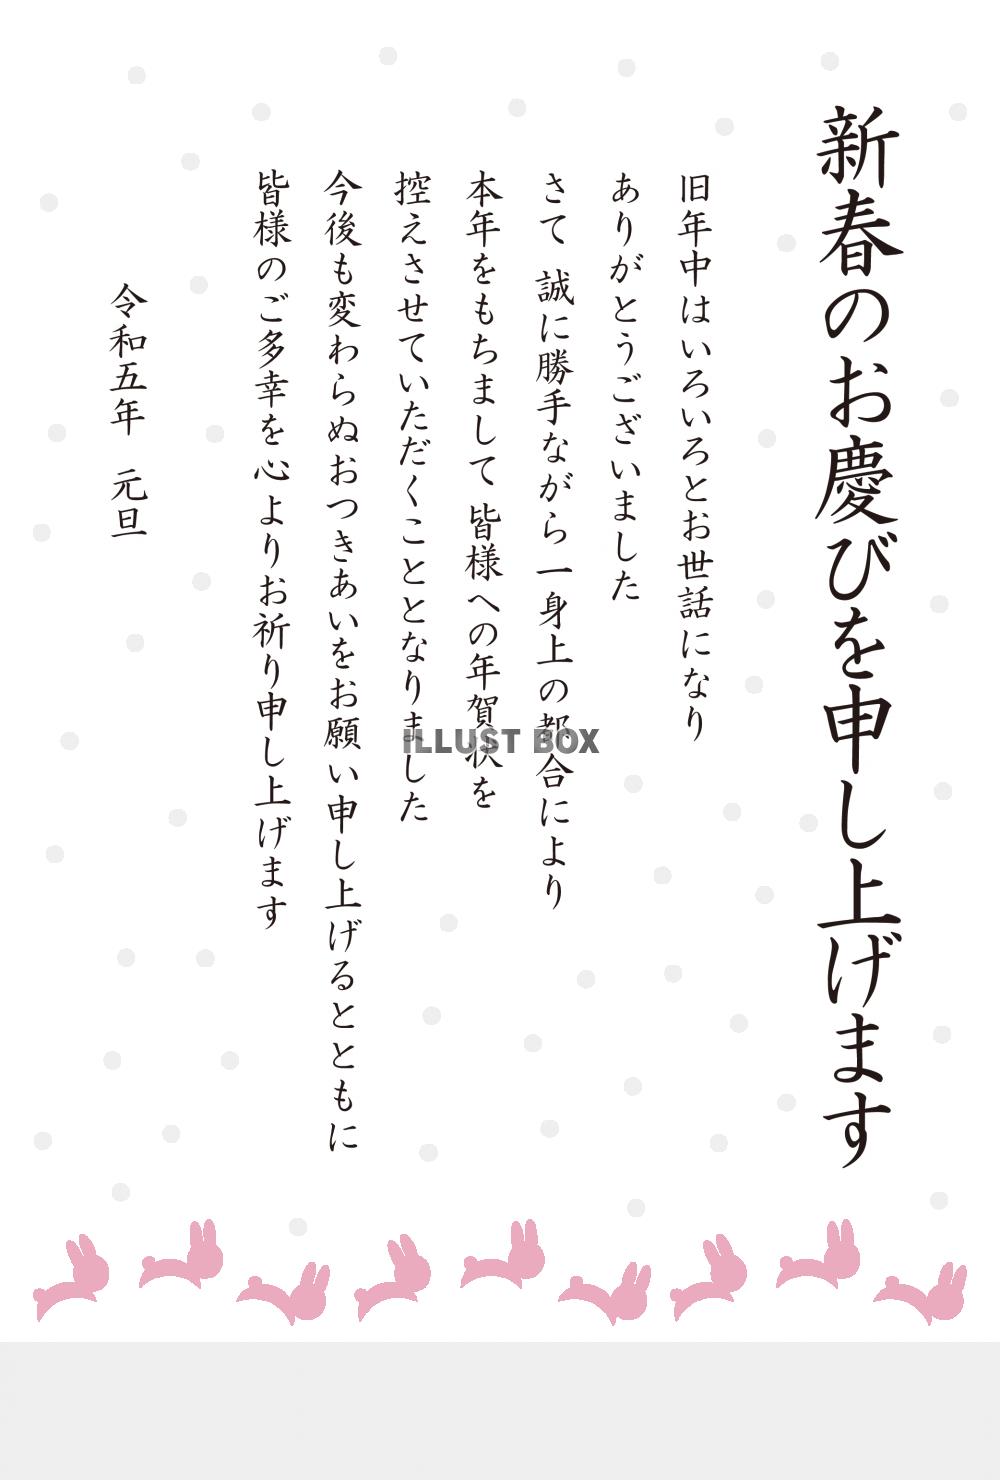 新春のお慶びを申し上げます
旧年中はいろいろとお世話になり
ありがとうございました
さて 誠に勝手ながら一身上の都合により
本年をもちまして 皆様への年賀状を
控えさせていただくこととなりました
今後も変わらぬおつきあいをお願い申し上げるとともに
皆様のご多幸を心よりお祈り申し上げます
令和五年 元旦
ILLUST BOX